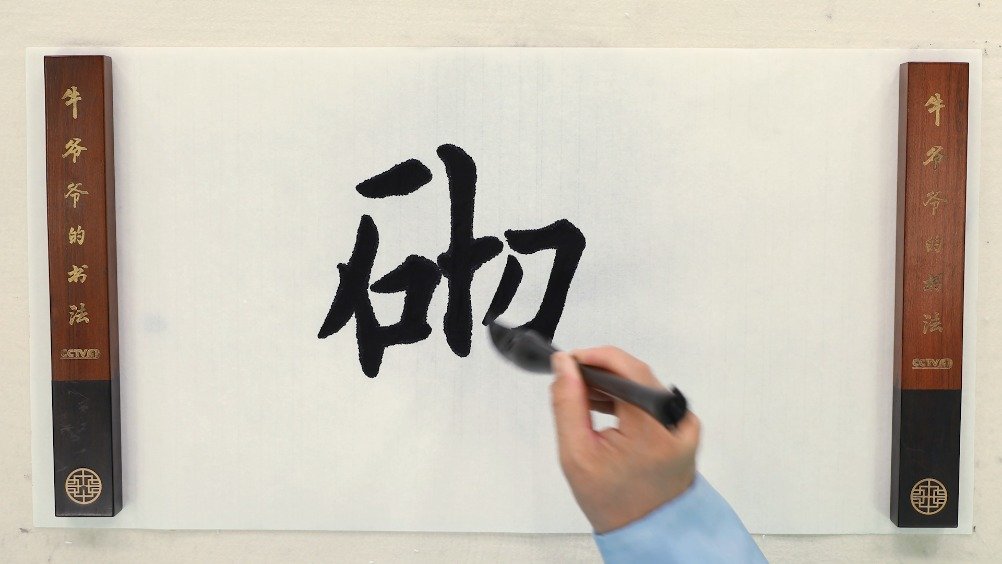 牛爷爷的书法
CCTV
砌
牛爷爷的书法
CCTV